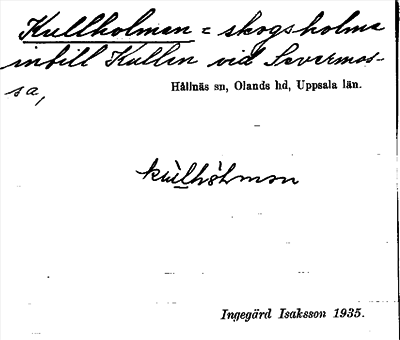 Kullholman = skogsholme
intill Kullen vid Savermos-
sa,
Hållnäs sn, Olands hd, Uppsala län.
kùlhòlman
Ingegärd Isaksson 1935.